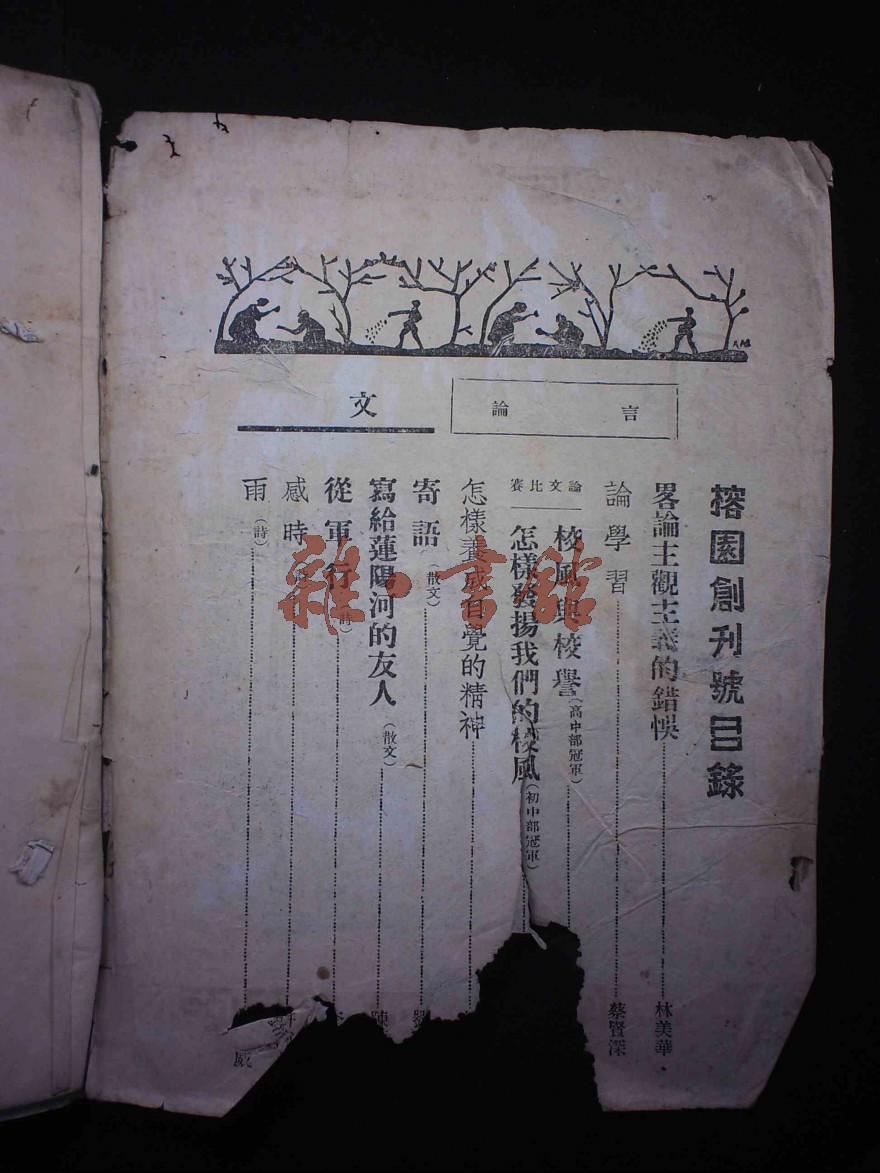 榕園創刊號目錄
言論
畧論主觀主義的錯悞 林美華
論學習 蔡賢深
論文比賽
校風與校譽(高中部冠軍)
怎樣發揚我們的校風(初中部冠軍)
怎樣養成自覺的精神
文
寄語(散文)
寫給蓮陽河的友人(散文) 陳
從軍行(詩)
感時
雨(詩) 威
雜·書館